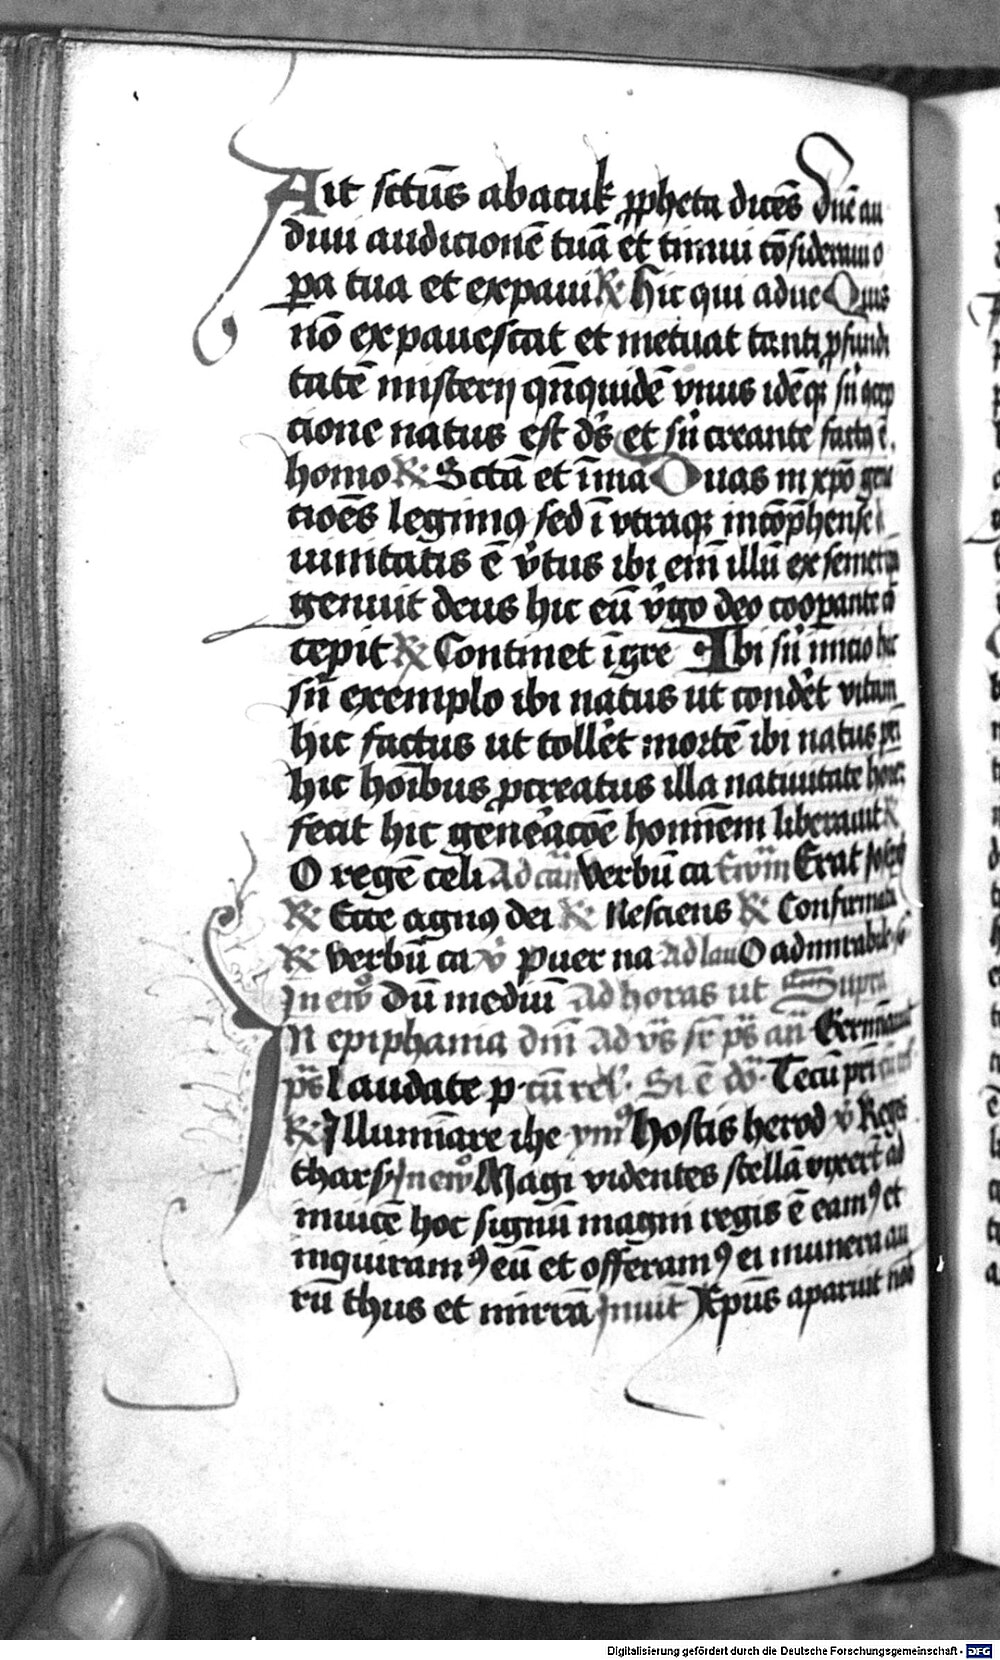 Ait sctūs abacuk ꝓpheta dicēs Dn̄e au
diui audicionē tuā et timui cōsideraui o
ꝑa tua et expaui ℞ Hic qui aduc Quis
nō expauescat et metuat tanti ꝓfundi
tatē misterij qn̄quidē vnus idēqꝫ sn̄
cione natus est ds̄ et sn̄ creante factꝯ ē.
homo ℞ Sctā et īma Duas in xp̄o gn̄a
cioēs legimꝯ sed ī vtraqꝫ incōp̄hensē
uinitatis ē v̄tus ibi em̄ illū ex semetip̄
genuit deus hic eū v̄go deo cooꝑante cō
cepit ℞ Continet īgre Ibi sn̄ inicio hic
sn̄ exemplo ibi natus ut condēt vitam
hic factus ut tollēt mortē ibi natus pr̄i
hic hoībus ꝓcreatus illa natiuitate hoīeꝫ
fecit hic gēnēacōe hominem liberauit ℞
O regē celi Ad cān Verbū ca Ewm̄ Erat Joseph
℞ Ecce agnꝯ dei ℞ Nesciens ℞ Confirmata
℞ Verbū ca v̄ Puer na Ad lau O admirabile
In ew̄ Dū mediū Ad horas ut Supra
In epiphania dn̄i Ad vs̄ sr̄ ps̄ an̄ Germīauit
ps̄ Laudate p cū rel'. Si ē do. Tecū prī
℞ Illumīare ihe ymꝯ Hostis herod v̄ Reges
tharsy In ew̄ Magi videntes stellā dixert̄ ad
inuicē hoc signū magni regis ē eamꝯ et
inquiramꝯ eū et offeramꝯ ei munera au
rū thus et mirrā Inuit̄ Xp̄us aparuit nob
Digitalisierung gefördert durch die Deutsche Forschungsgemeinschaft - DFG